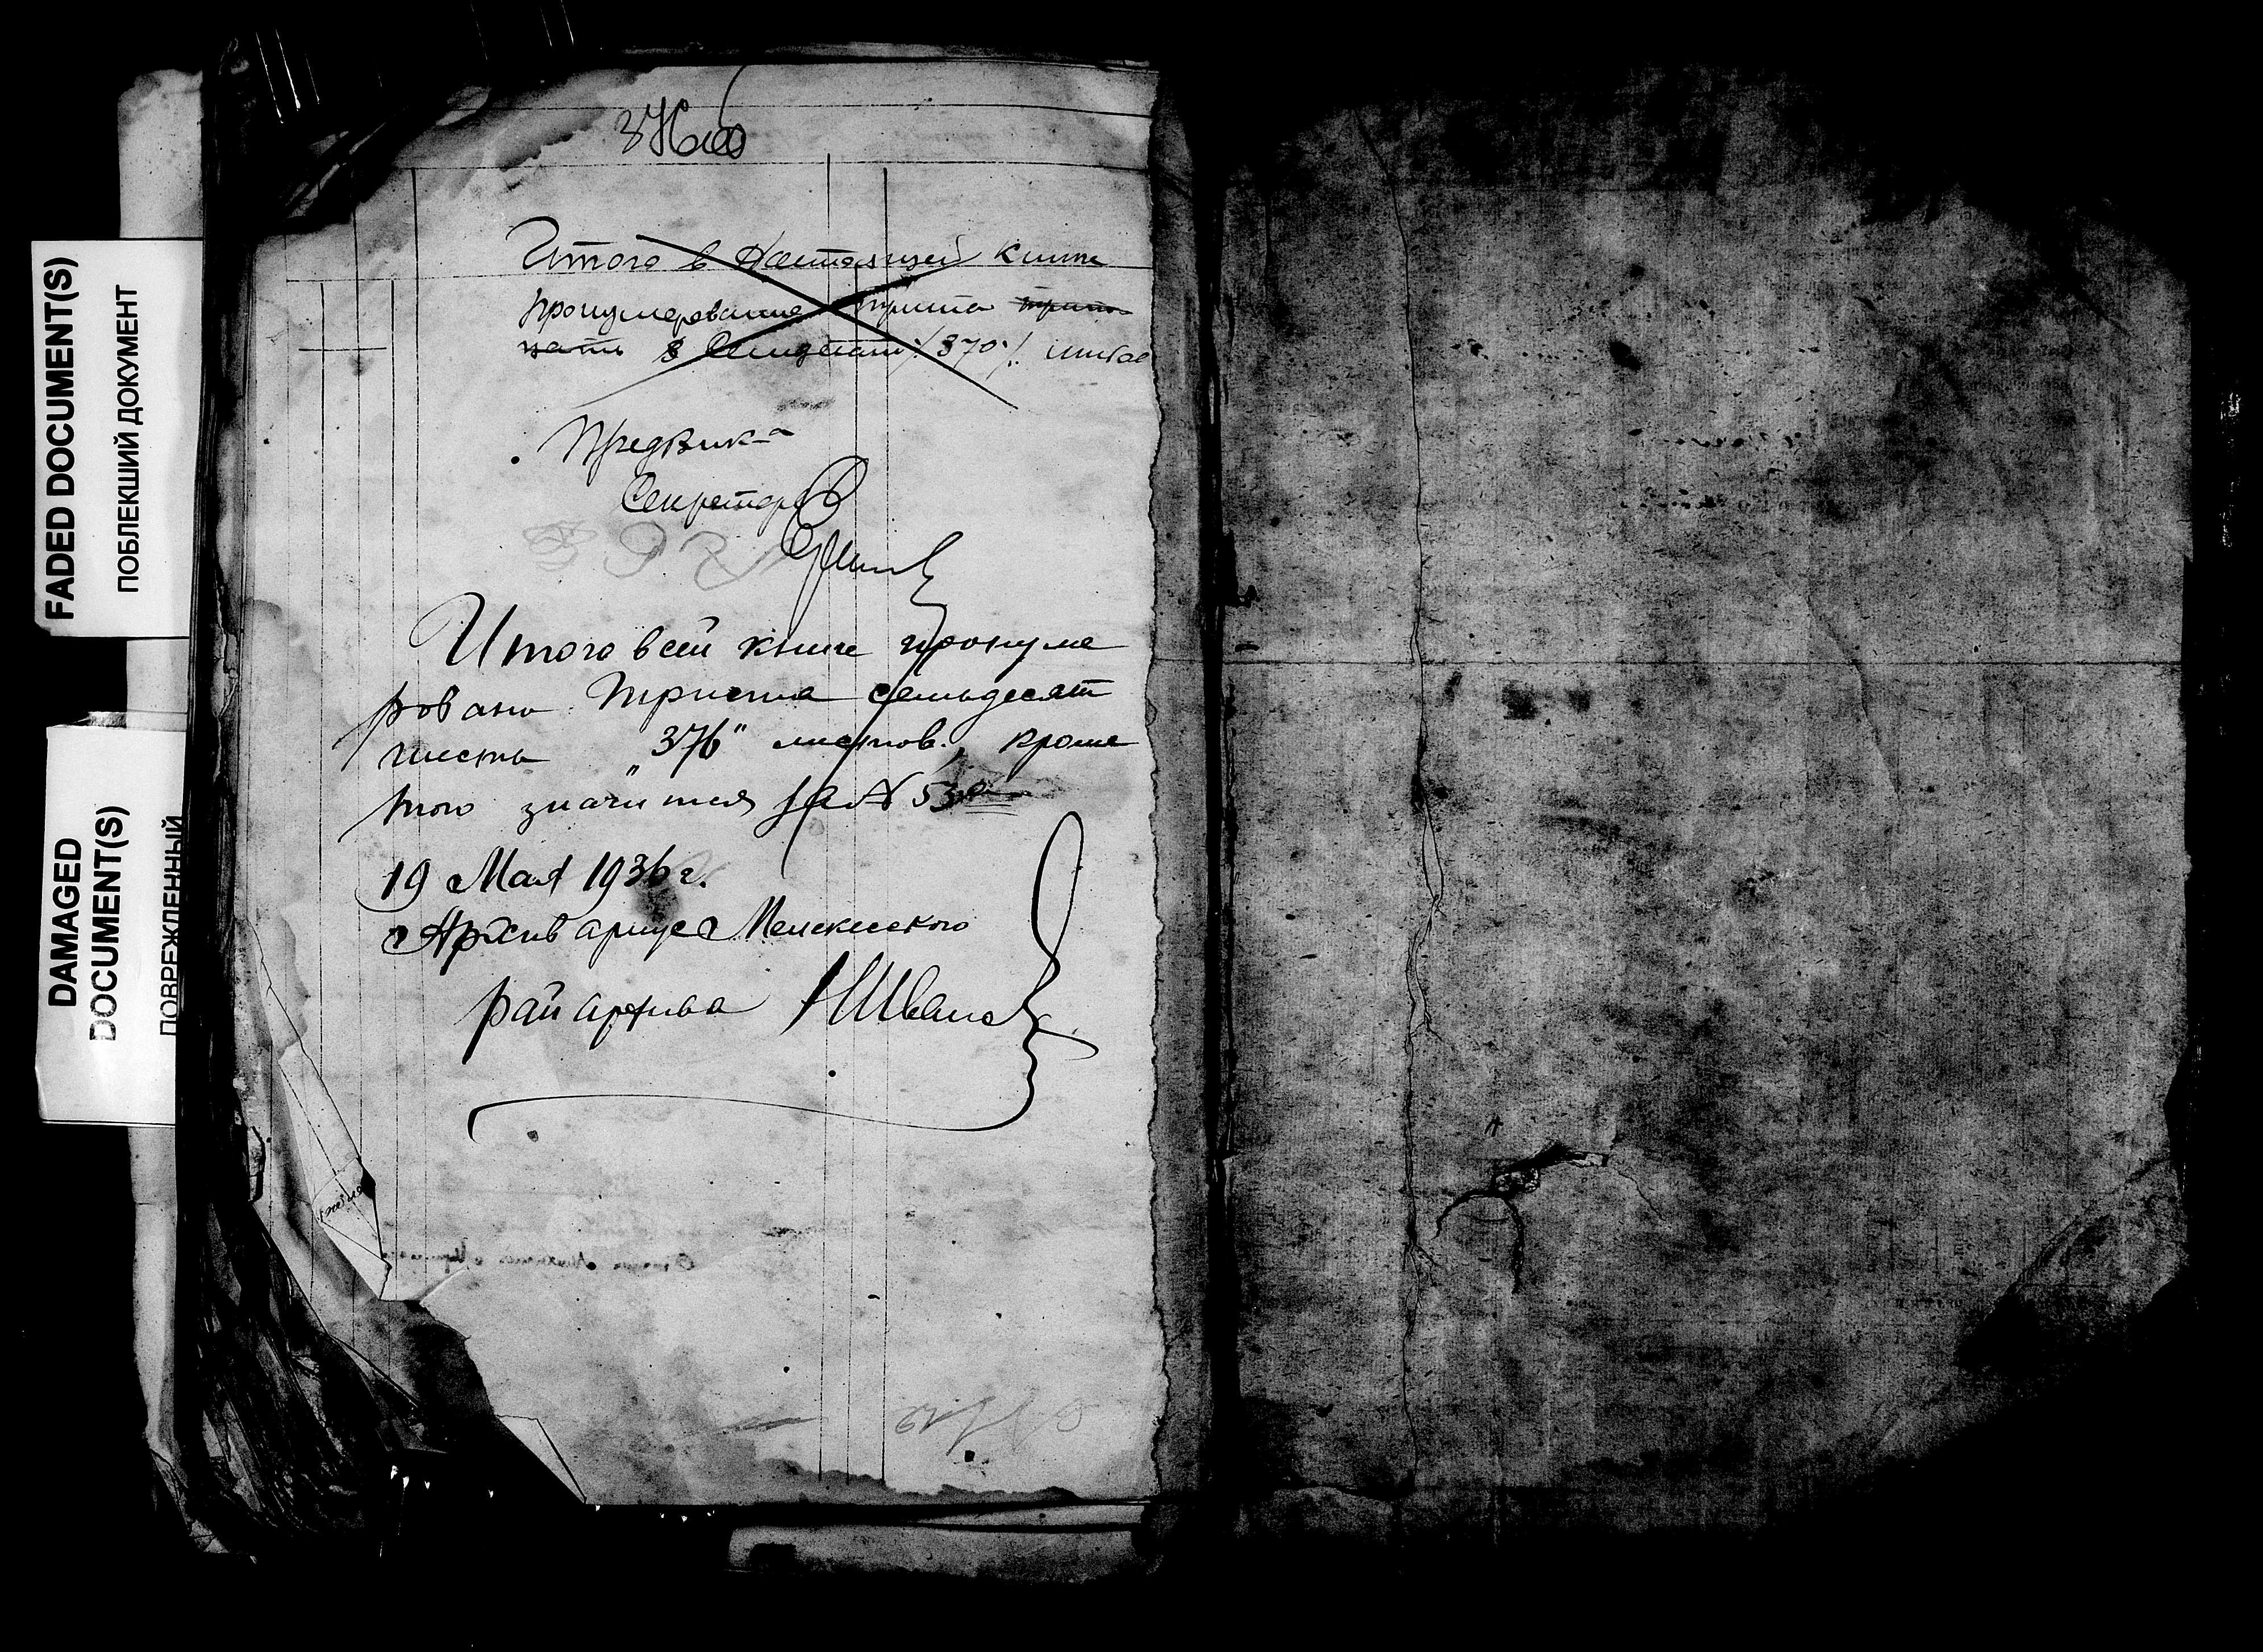 FADED DOCUMENT(S)
ПОБЛЕКШИЙ ДОКУМЕНТ
DAMAGED
DOCUMENT(S)
ПОВРЕЖДЕННЫЙ
376об
Итого в настоящей книге
пронумеровано триста
семьдесят /370/ листов
Предвика
Секретарь
Итого в сей книге пронуме
ровано триста семьдесят
шесть "376" листов., кроме
того значится за № 53а
19 Мая 1936 г.
Архивариус Мелекесского
райархива НИванов